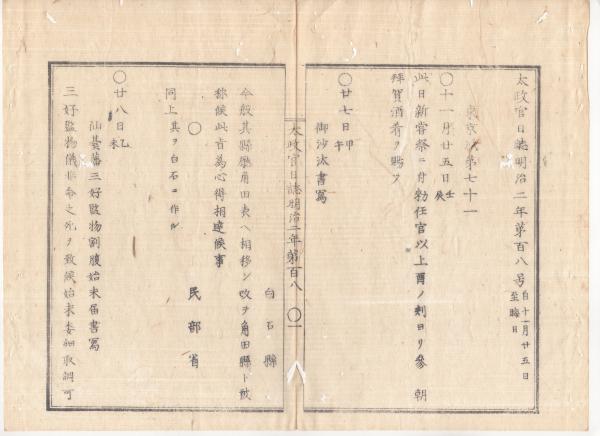 太政官日誌明治二年第百八号 自十一月廿五日至晦日
東京城第七十一
〇十一月廿五日 壬辰
此日新嘗祭ニ付勅任官以上酉ノ刻ヨリ參 朝
拜賀酒肴ヲ賜フ
〇廿七日 甲午
御沙汰書寫
太政官日誌明治二年第百八 〇一
白石縣
今般其縣廳角田表ヘ相移シ改ヲ角田縣ト被
称候此旨為心得相達候事
民部省
〇
同上 其ヲ白石ニ作ル
〇廿八日 乙未
仙臺藩三好監物割腹始末届書寫
三好監物儀非命之死ヲ致候始末委細取調可